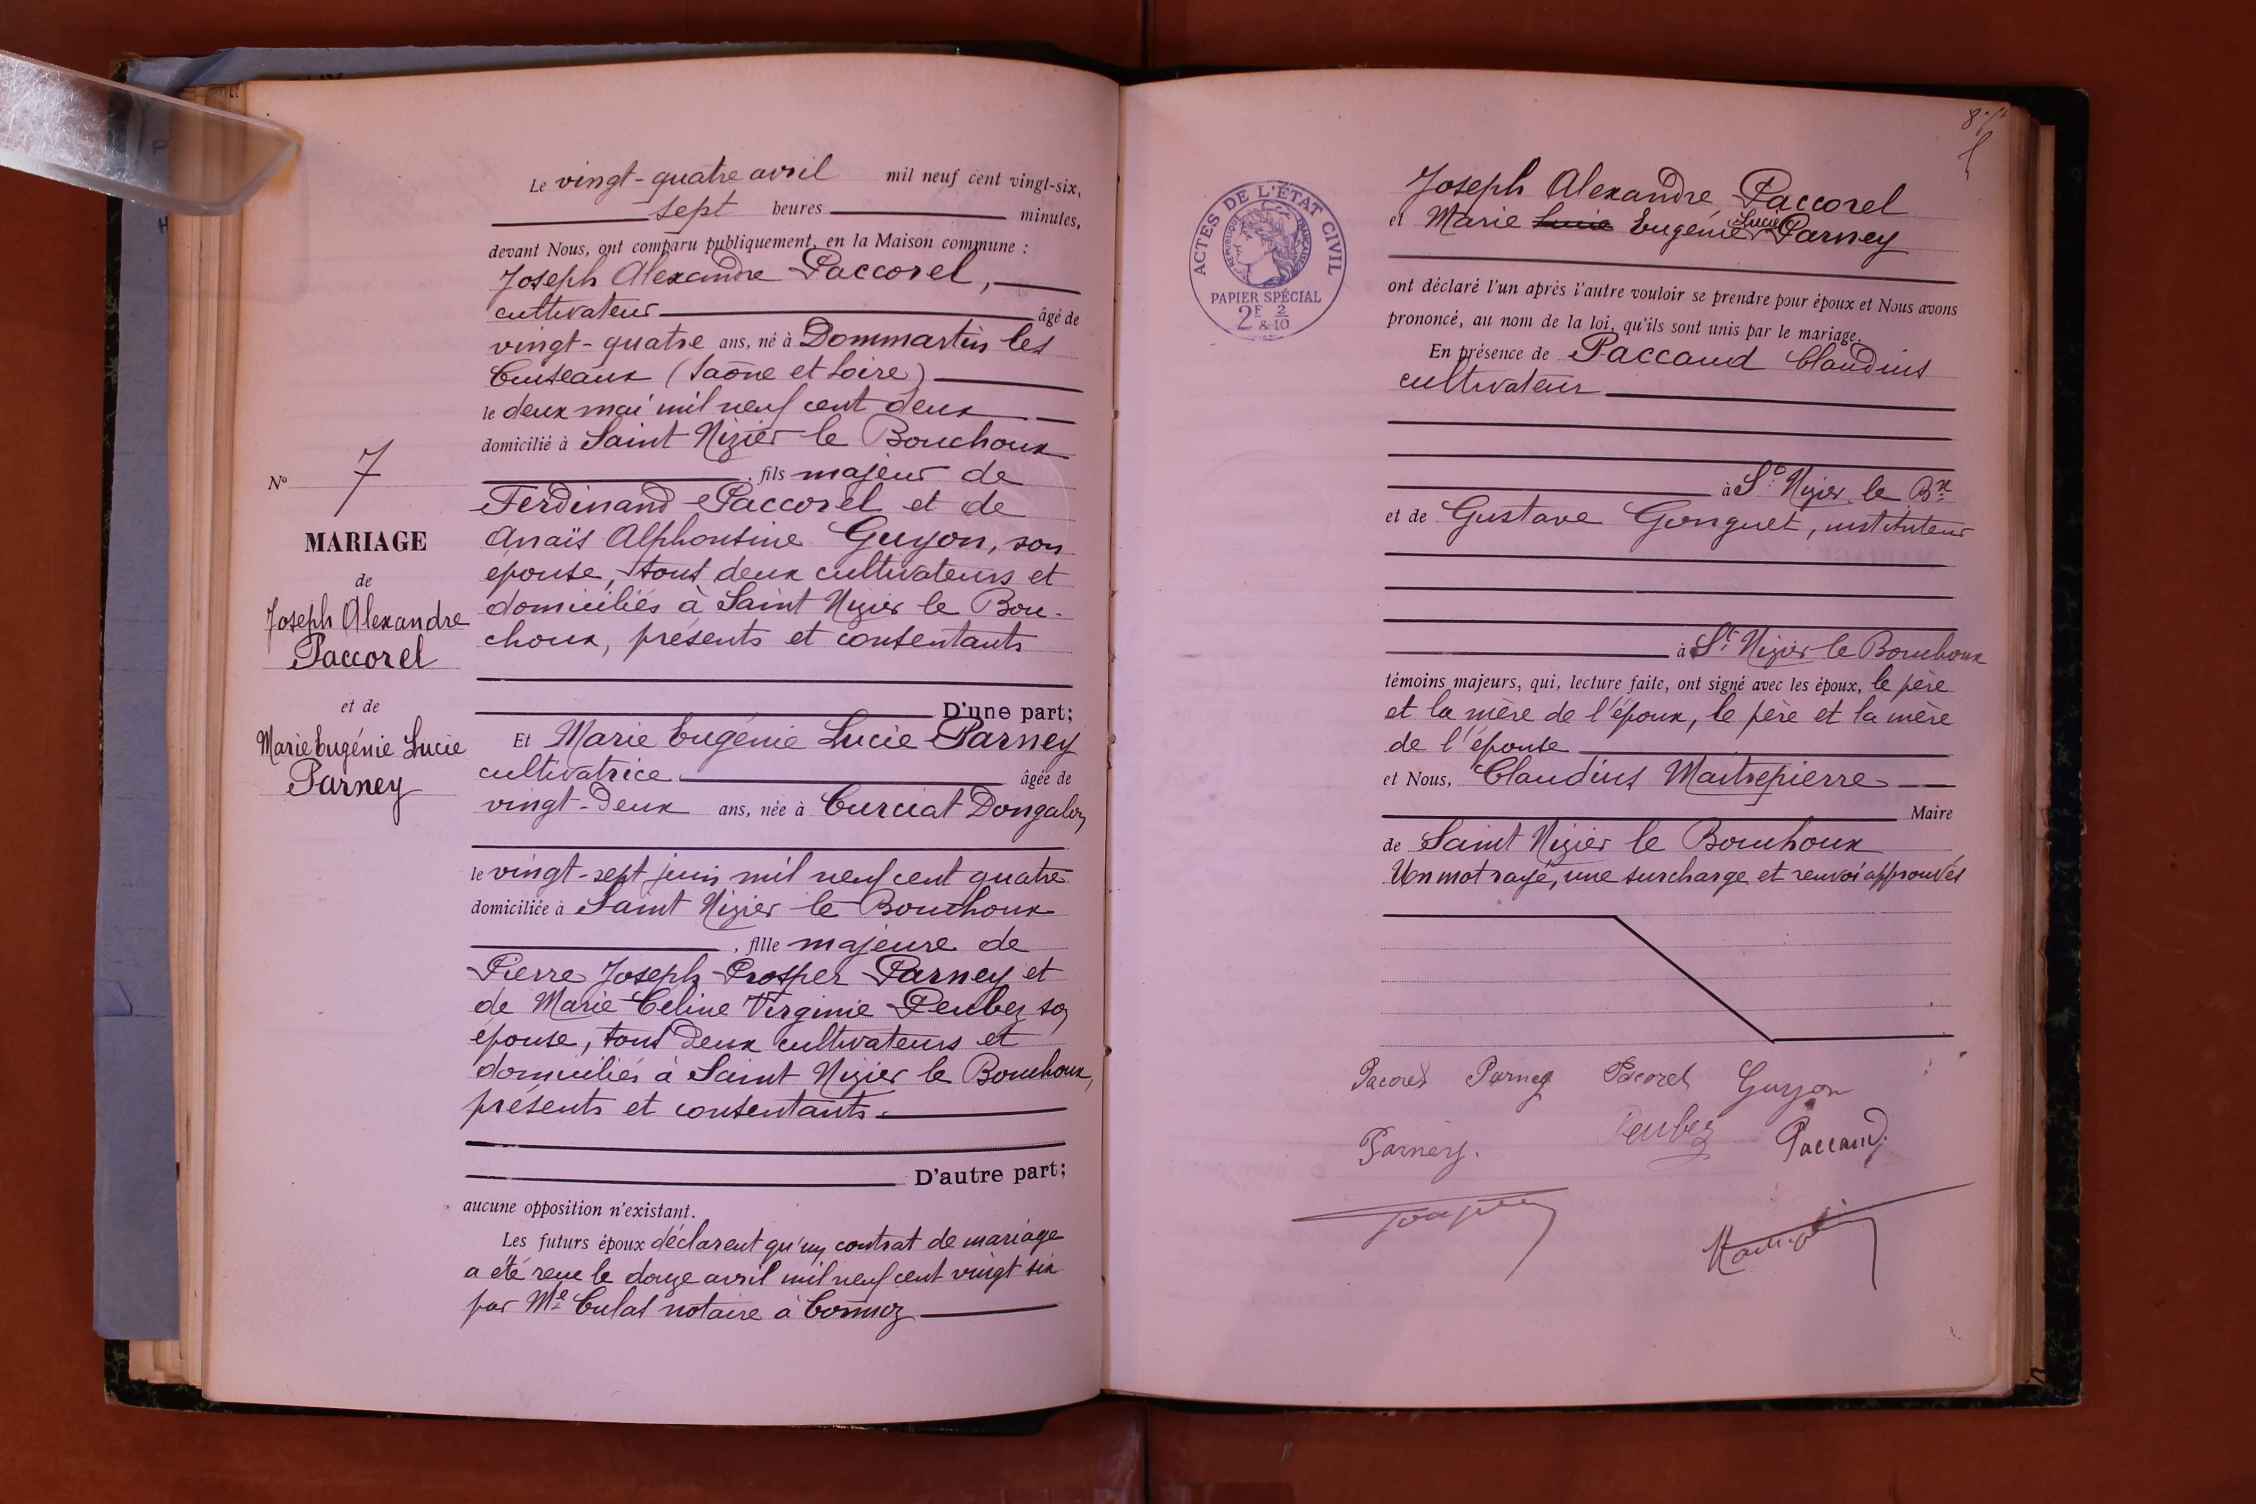 Le vingt-quatre avril mil neuf cent vingt-six,
sept heures minutes,
devant Nous, ont comparu publiquement, en la Maison commune :
Joseph Alexandre Paccorel,
cultivateur âgé de
vingt-quatre ans, né à Dommartin les
Cuiseaux (Saône et Loire)
le deux mai mil neuf cent deux
domicilié à Saint Nizier le Bouchoux
, fils majeur de
Ferdinand Paccorel et de
Anaïs Alphonsine Guyon, son
épouse, tous deux cultivateurs et
domiciliés à Saint Nizier le Bou-
choux, présents et consentants
D'une part;
Et Marie Eugénie Lucie Parney
cultivatrice âgée de
vingt-deux ans, née à Curciat Dongalon
le vingt-sept juin mil neuf cent quatre
domiciliée à Saint Nizier le Bouchoux
, fille majeure de
Pierre Joseph Prosper Parney et
de Marie Céline Virginie Peubez son
épouse, tous deux cultivateurs et
domiciliés à Saint Nizier le Bouchoux,
présents et consentants.
D'autre part;
aucune opposition n'existant.
Les futurs époux déclarent qu'un contrat de mariage
a été reçu le douze avril mil neuf cent vingt six
par Me Culas notaire à Cormoz
No 7
MARIAGE
de
Joseph Alexandre
Paccorel
et de
Marie Eugénie Lucie
Parney
ACTES DE L'ÉTAT CIVIL
RÉPUBLIQUE FRANÇAISE
PAPIER SPÉCIAL
2E 2
& 10
Joseph Alexandre Paccorel
et Marie Lucie Eugénie Lucie Parney
ont déclaré l'un après l'autre vouloir se prendre pour époux et Nous avons
prononcé, au nom de la loi, qu'ils sont unis par le mariage.
En présence de Paccaud Claudius
cultivateur
à St Nizier le Bx
et de Gustave Gonguet, instituteur
à St Nizier le Bouchoux
témoins majeurs, qui, lecture faite, ont signé avec les époux, le père
et la mère de l'époux, le père et la mère
de l'épouse
et Nous, Claudius Maitrepierre
Maire
de Saint Nizier le Bouchoux
Un mot rayé, une surcharge et renvoi approuvés
Pacorel Parney Pacorel Guyon
Parney. Peubez Paccaud